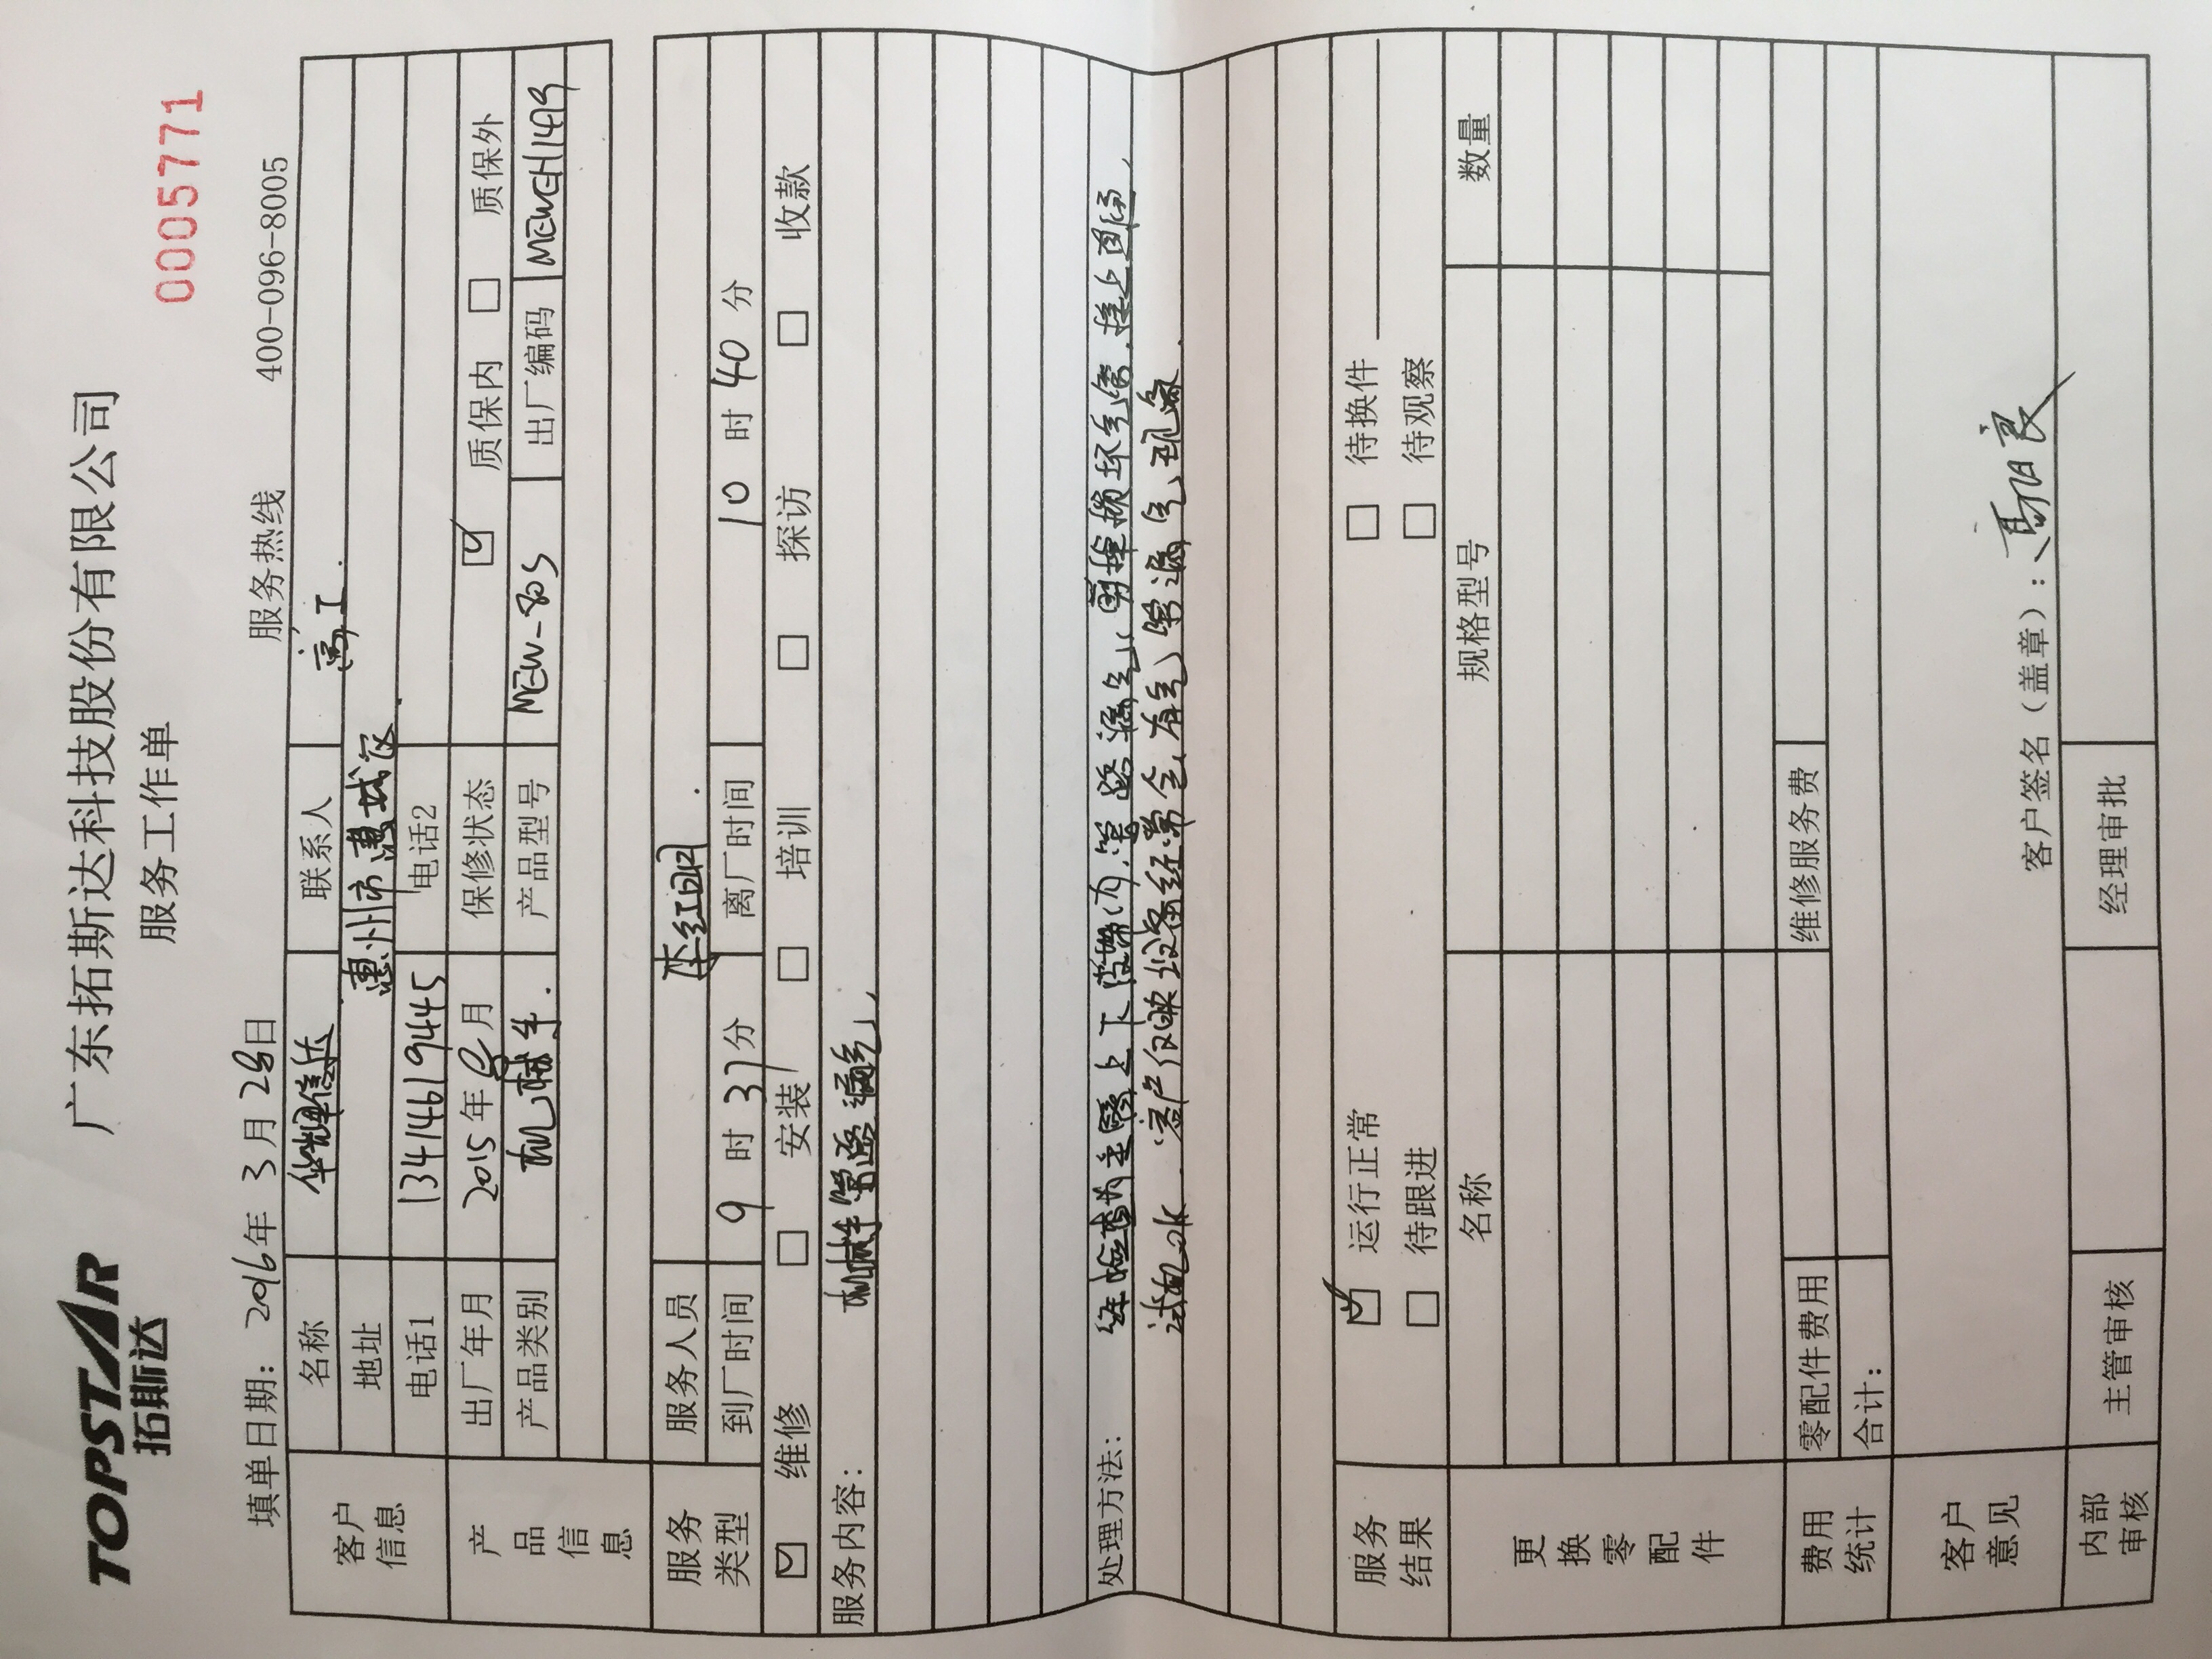 TOPSTAR
拓斯达
广东拓斯达科技股份有限公司
服务工作单
0005771
填单日期：2016年 3月 28日 服务热线 400-096-8005
客户信息 名称 华辉信达 联系人 高工.
地址 惠州市惠城区.
电话1 13414619445 电话2
产品信息 出厂年月 2015年 月 保修状态 ☑ 质保内 □ 质保外
产品类别 机械手. 产品型号 MEW-80S 出厂编码 MEWCH1419
服务类型 服务人员 李红明.
到厂时间 9 时 37分 离厂时间 10 时 40 分
☑ 维修 □ 安装 □ 培训 □ 探访 □ 收款
服务内容： 机械手管路漏气
处理方法： 经检查为手臂上下 内管路漏气，剪掉损坏气管，接上直 ，
试机OK. 客户反映设备经常会有气管漏气现象.
服务结果 ☑ 运行正常 □ 待换件
□ 待跟进 □ 待观察
更换零配件 名称 规格型号 数量
费用统计 零配件费用 维修服务费
合计：
客户意见
客户签名（盖章）：
内部审核 主管审核 经理审批